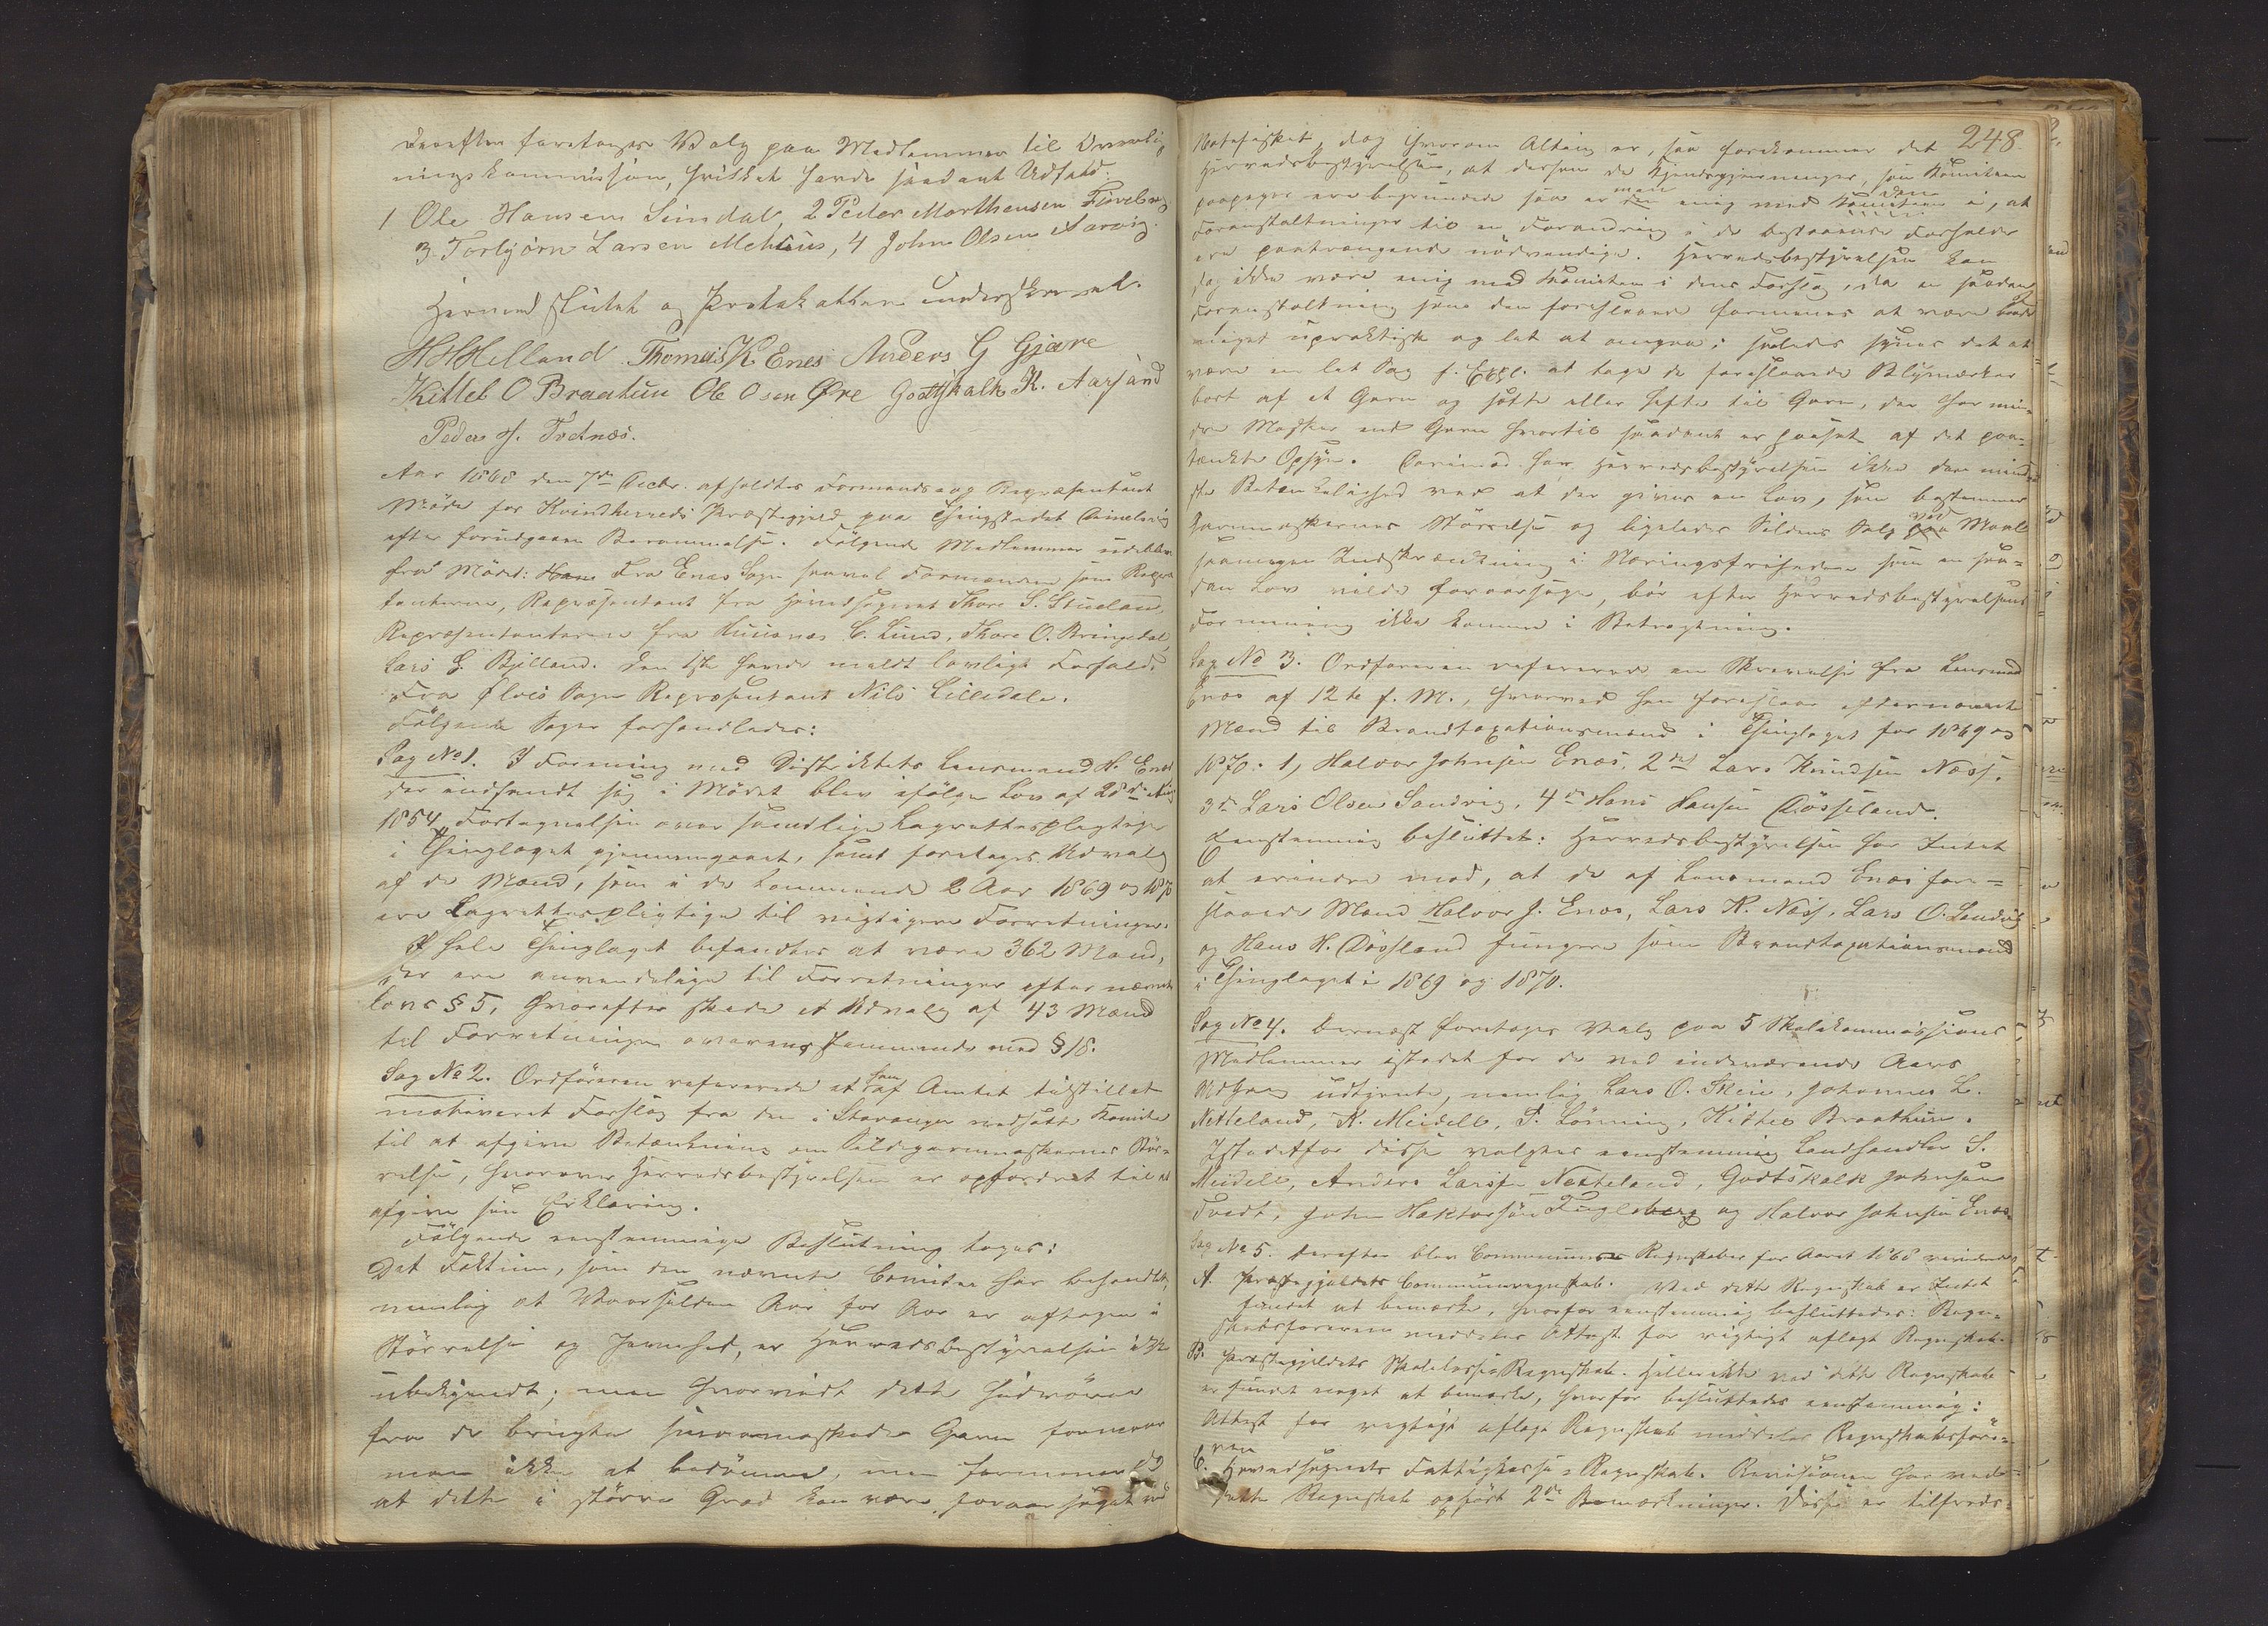 derefter foretoges Valg paa Medlemmer til Overlig
ningskommission, hvilket havde saadant Udfald:
1 Ole Hansen Sundal, 2 Peder Morthensen
3. Torbjørn Larsen Mehus, 4 John Olsen Aarvig.
Hermed sluttet og Protokollen underskrevet.
HHHelland Thomas K. Enes Anders G Gjære
Kittel O Braatun Ole Osen Øre Godtskalk K. Aarsand
Peder J. Tvetnæs.
Aar 1868 den 7de Decbr. afholdtes Formands- og Repræsentant
Møde for Kvindherreds Præstegjeld paa Thingstedet
efter forudgaaen Berammelse. Følgende Medlemmer udebleve
fra Mødet: Fra Enes Sogn saavel Formanden som Repræ
tanterne, Repræsentant fra Hovedsognet Thore S.
Repræsentanterne fra Huusnæs C. Lund, Thore O. Bringedal,
Lars G. Bjelland. Den 1ste havde meldt lovligt Forfald.
Fra Ølves Sogn Repræsentant Nils Lilledale.
Følgende Sager forhandledes:
Sag No 1. I Forening med Distriktets Lensmand H. Enes
der indfandt sig i Mødet blev ifølge Lov af 28de Aug
1854 Fortegnelsen over samtlige Lagrettespligtige
i Thinglaget gjennemgaaet, samt foretoges Udvalg
af de Mænd, som i de kommende 2 Aar 1869 og 1870
ere Lagrettespligtige til vigtigere Forretninger.
I hele Thinglaget befandtes at være 362 Mænd,
der ere anvendelige til Forretninger efter nævnte
lovs § 5, hvorefter skede et Udvalg af 43 Mænd
til Forretninger overensstemmende med § 18.
Sag No 2. Ordføreren refererede et fra Amtet tilstillet
motiveret Forslag fra den i Stavanger nedsatte Komite
til at afgive Betænkning om Sildegarnmaskernes Stør-
relse, hvorover Herredsbestyrelsen er opfordret til at
afgive sin Erklæring.
Følgende eenstemmige Beslutning toges:
Det Faktum, som den nævnte Comitee har behandlet,
nemlig at Vaarsilden Aar for Aar er aftagen i
Størrelse og Jevnhed, er Herredsbestyrelsen ikke
ubekjendt; men hvorvidt dette hidrører
fra de brugte Garn formaar
man ikke at bedømme, men formener dog
at dette i større Grad kan være foraarsaget ved
248.
Notefiskeri, dog hvorom Alting er, saa forekommer det
Herredsbestyrelsen, at dersom de Kjendsgjerninger, som Komiteen
paapeger ere begrundede saa er man enig med den i, at
Foranstaltninger til en Forandring i de bestaaende Forholde
ere paatrængende nødvendige. Herredsbestyrelsen kan
dog ikke være enig med Komiteen i dens Forslag, da en saadan
Foranstaltning som den foreslaaede formenes at være baade
meget upraktisk og let at omgaa; saaledes synes det at
være en let Sag f. Expl. at tage de foreslaaede Blymærker
bort af et Garn og sætte eller hefte til Garn, der har min-
dre Masker end Garn hvortil saadant er passet af det paa-
tænkte Opsyn. Derimod har Herredsbestyrelsen ikke den mind
ste Betænkelighed ved at der gives en Lov, som bestemmer
Garnmaskernes Størrelse og ligeledes Sildens Salg ved Maal
saamegen Indskrænkning i Næringsfriheden som en saa-
dan Lov vilde foraarsage, bør efter Herredsbestyrelsens
Formening ikke komme i Betragtning.
Sag No 3. Ordføreren refererede en Skrivelse fra Lensmand
Enes af 12te f. M., hvorved han foreslaar efternævnte
Mænd til Brandtaxationsmænd i Thinglaget for 1869 og
1870: 1, Halvor Johnsen Enæs, 2de Lars Knudsen Næss.
3de Lars Olsen Sandvig, 4de Hans Hansen Døssland.
Eenstemmig besluttet: Herredsbestyrelsen har Intet
at erindre mod, at de af Lensmand Enæs fore-
slaaede Mænd Halvor J. Enæs, Lars K. Næss, Lars O. Sandvig
og Hans H. Døssland fungere som Brandtaxationsmænd
i Thinglaget i 1869 og 1870.
Sag No 4. Dernæst foretoges Valg paa 5 Skolekommissions
Medlemmer istedet for de ved indeværende Aars
Udgang udtjente, nemlig Lars O. Skeie, Johannes L.
Netteland, K. Meidell, P. Lønning, Kittel Braathun.
Istedetfor disse valgtes eenstemmig Landhandler S.
Meidell, Anders Larsen Netteland, Godtskalk Johnsen
Tvedt, John Haktorsøn Fugleberg og Halvor Johnsen Enæs.
Sag No 5. Derefter blev Communens Regnskaber for Aaret 1868 revideret
A. Præstegjeldets Communeregnskab. Ved dette Regnskab er Intet
fundet at bemærke, hvorfor eenstemmig besluttedes: Regn-
skabsføreren meddeles Attest for rigtigt aflagt Regnskab.
B. Præstegjeldets Skolekasse Regnskab. Heller ikke ved dette Regnskab
er fundet noget at bemærke, hvorfor besluttedes eenstemmig:
Attest for rigtigt aflagt Regnskab meddeles Regnskabsføre-
ren
C. Hovedsognets Fattigkasse Regnskab. Revisionen har ved
dette Regnskab opført 2de Bemærkninger. Disse er tilfreds-